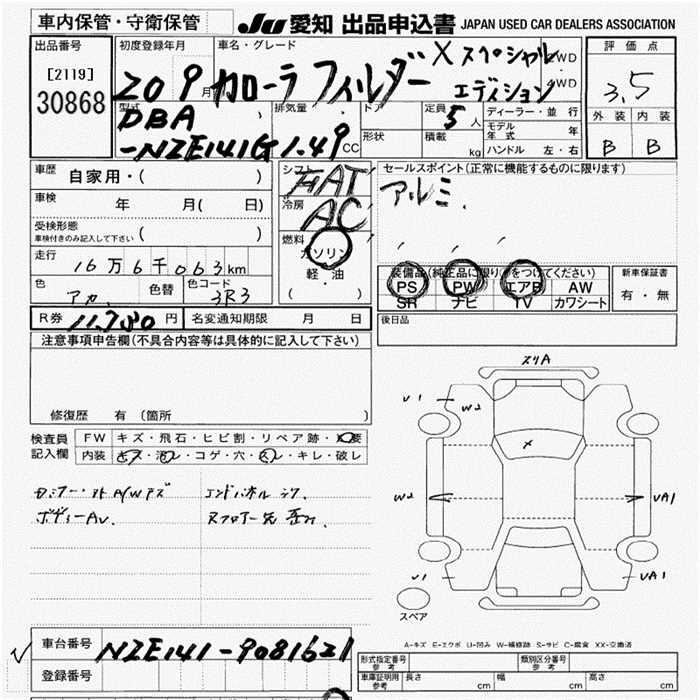 車内保管・守衛保管 JU 愛知 出品申込書 JAPAN USED CAR DEALERS ASSOCIATION
出品番号 初度登録年月 車名・グレード 評価点
[2119] 30868
Z09 カローラ フィルダー X スペシャル エディション 月 2WD 4WD
3.5
型式 排気量 ドア 定員 5人 ディーラー・並行 外装 内装
DBA
-NZE141G 1.49 CC 形状 積載 kg モデル年式 年
ハンドル 左・右 B B
車歴 自家用・( ) シフト FAT セールスポイント(正常に機能するものに限ります)
車検 年 月( 日) 冷房 AC アルミ
受検形態 車検付きのみ記入して下さい ( )
走行 16万6千063km 燃料 ガソリン 軽・油 ( )
装備品(純正品に限り○をつけてください) 新車保証書
色 アカ 色替 色コード 3R3 PS PW エアB AW 有・無
SR ナビ TV カワシート
R券 11,780円 名変通知期限 月 日 後日品
注意事項申告欄(不具合内容等は具体的に記入して下さい)
修復歴 有 (箇所
検査員記入欄 FW キズ・飛石・ヒビ割・リペア跡・X要
内装 キズ・汚レ・コゲ・穴・スレ・キレ・破レ
A/Wキズ
スリA
U1 W2
X
W2 UA1
U1 UA1
スペア
A-キズ E-エクボ U-凹み W-補修跡 S-サビ C-腐食 XX-交換済
車台番号 NZE141-9081621
登録番号
形式指定番号 参考 類別区分番号 参考
車庫証明用 参考 長さ cm 幅 cm 高さ cm